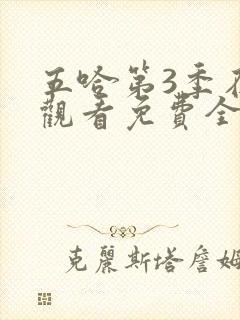 五哈第3季在
觀看免費全
克麗斯塔詹姆